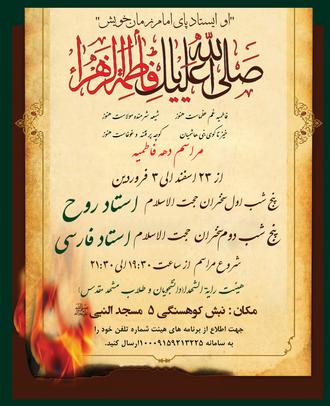 "او ایستاد پای امام زمان خویش"
صلی الله علیک یا فاطمة الزهرا
فاطمیه غم عظماست هنوز شیعه شرمنده مولاست هنوز
کوچه پر فتنه و غوغاست هنوز
مراسم دهه فاطمیه
از ۲۳ اسفند الی ۳ فروردین
پنج شب اول سخنران حجت الاسلام استاد روح
پنج شب دوم سخنران حجت الاسلام استاد فارسی
شروع مراسم از ساعت ۱۹:۳۰ الی ۲۱:۳۰
هیئت رایة الشهدا (دانشجویان و طلاب مشهد مقدس)
مکان: نبش کوهسنگی ۵ مسجد النبی
جهت اطلاع از برنامه های هیئت شماره تلفن خود را
به سامانه ۱۰۰۰۹۱۵۹۲۱۳۲۲۵ ارسال کنید.